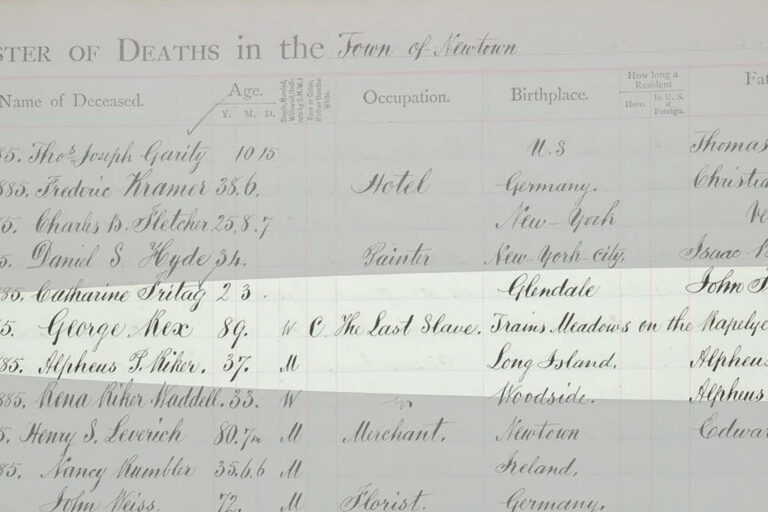 STER OF DEATHS in the Town of Newtown
Name of Deceased. Age. Y. M. D. Occupation. Birthplace. How long a Resident Here. In U. S. if Foreign. Fat
85. Thos. Joseph Garity 10 15 U.S Thomas
885. Frederic Kramer 38. 6. Hotel Germany. Christia
5. Charles B. Fletcher 25. 8. 7 New-York
5. Daniel S. Hyde 34. Painter New-York-City. Isaac
885. Catharine Fritag 2 3. Glendale John
5. George Rex 89. W C. The Last Slave. Trains Meadows on the Rapelyc
885. Alpheus P. Riker. 37. M Long Island. Alpheus
885. Rena Riker Waddell. 33. W Woodside. Alpheus
5. Henry S. Leverich 80. 7m M Merchant. Newtown Edwar
85. Nancy Rumbler 35. 6. 6 M Ireland.
John Weiss. 72. M Florist. Germany.